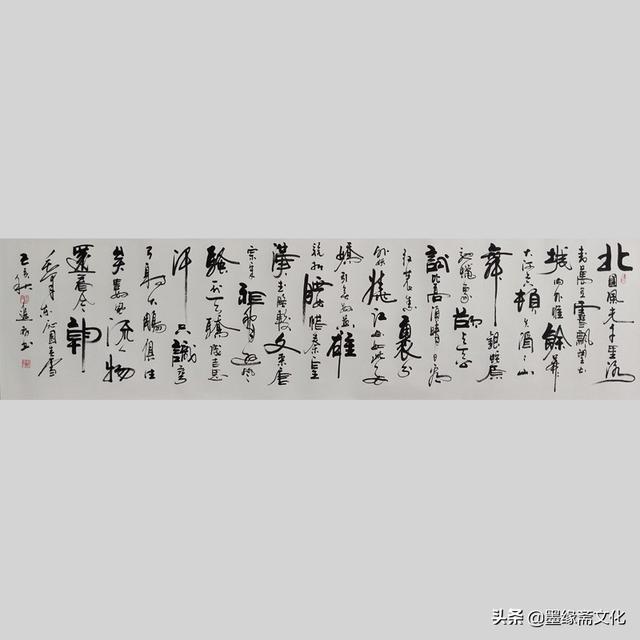 北國風光千里冰
封萬里雪飄望長
城內外惟餘莽
大河上下頓失滔滔山
舞銀蛇原
馳蠟象欲與天公
試比高須晴日看
紅裝素裹分
外妖嬈江山如此多
嬌引無數英雄
競折腰惜秦皇
漢武略輸文采唐
宗宋祖稍遜風
騷一代天驕成吉思
汗只識彎
弓射大鵰俱往
矣數風流人物
還看今朝
毛澤東沁園春雪
己亥秋書
头条 @墨缘斋文化